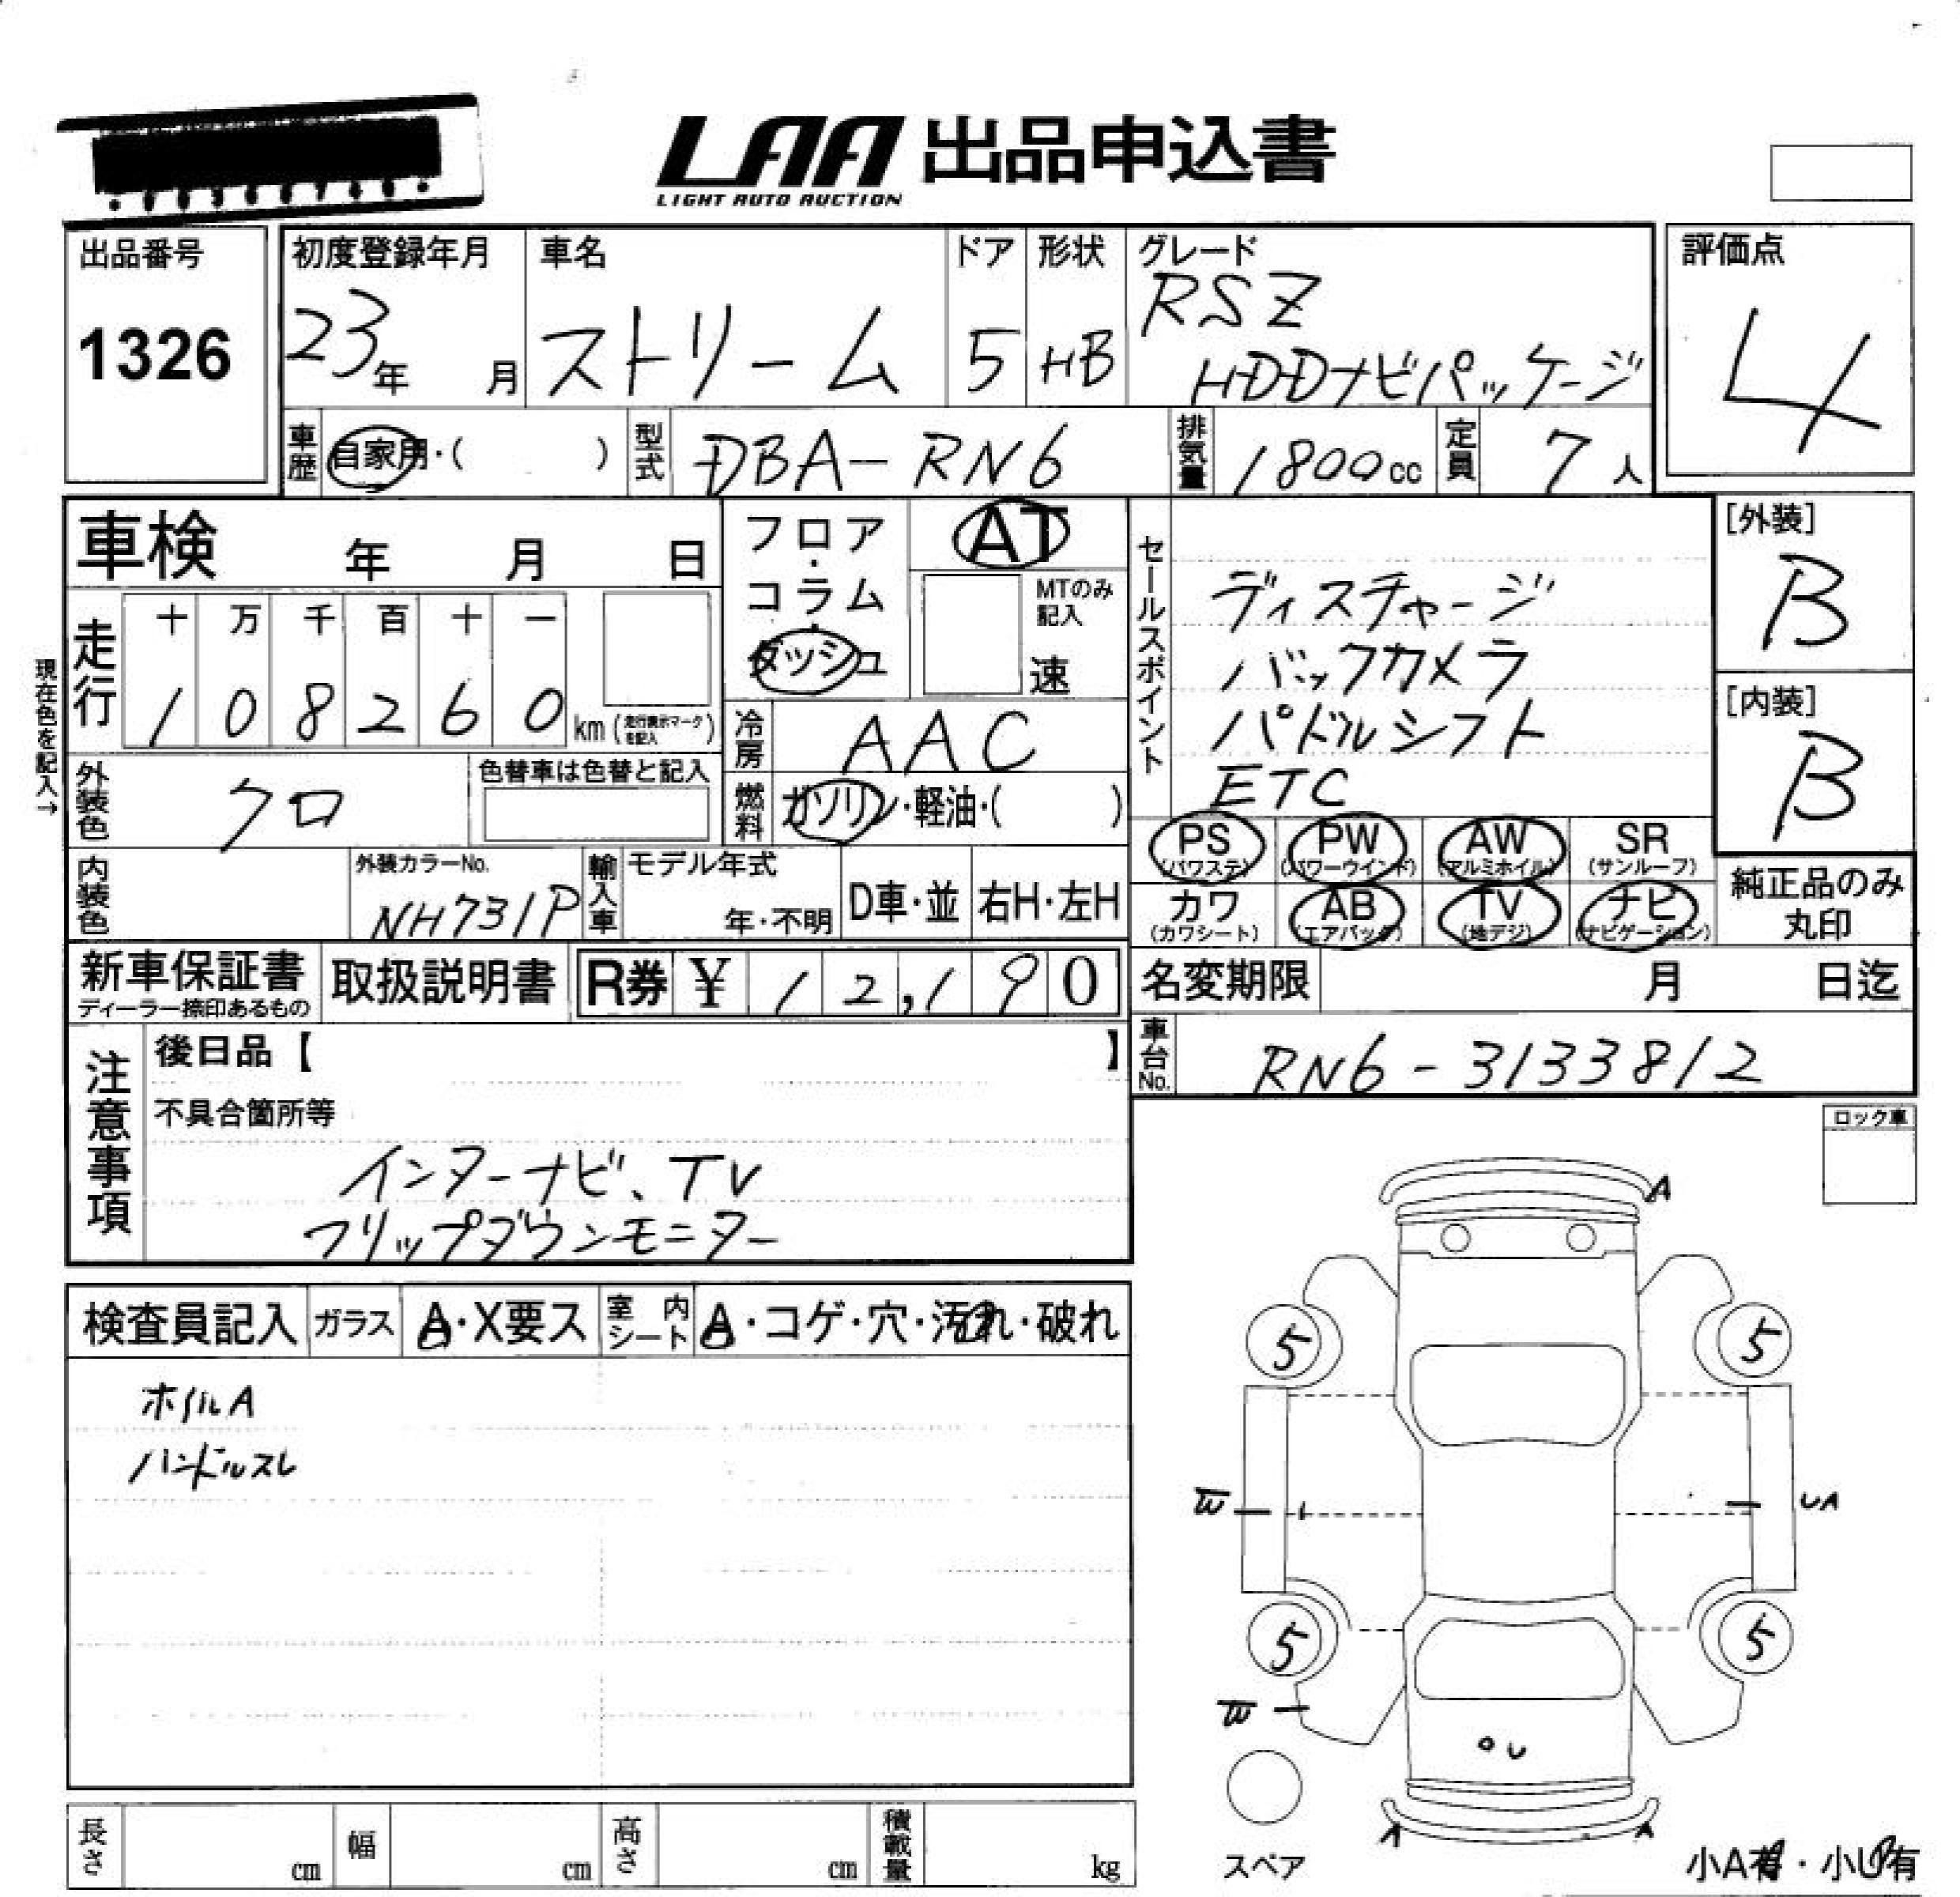 LAA 出品申込書
LIGHT AUTO AUCTION
出品番号
1326
初度登録年月
23年 月
車名
ストリーム
ドア
5
形状
HB
グレード
RSZ
HDDナビパッケージ
評価点
4
車歴
自家用・( )
型式
DBA-RN6
排気量
1800cc
定員
7人
車検 年 月 日
フロア・コラム・ダッシュ
AT
MTのみ記入
速
セールスポイント
ディスチャージ
バックカメラ
パドルシフト
ETC
[外装]
B
[内装]
B
現在色を記入→
走行
十 万 千 百 十 一
1 0 8 2 6 0 km (走行表示マークを記入)
冷房
AAC
外装色
クロ
色替車は色替と記入
燃料
ガソリン・軽油・( )
PS (パワステ)
PW (パワーウインド)
AW (アルミホイル)
SR (サンルーフ)
カワ (カワシート)
AB (エアバック)
TV (地デジ)
ナビ (ナビゲーション)
純正品のみ丸印
内装色
外装カラーNo.
NH731P
輸入車
モデル年式
年・不明
D車・並
右H・左H
新車保証書
ディーラー捺印あるもの
取扱説明書
R券 ¥ 12,190
名変期限 月 日迄
車台No.
RN6-3133812
注意事項
後日品【 】
不具合箇所等
インターナビ、TV
フリップダウンモニター
ロック車
検査員記入
ガラス
A・X要ス
室内シート
A・コゲ・穴・汚れ・破れ
ホイルA
ハンドルスレ
A
5
5
W
UA
5
5
W
U
A
A
スペア
小A有・小U有
長さ cm
幅 cm
高さ cm
積載量 kg